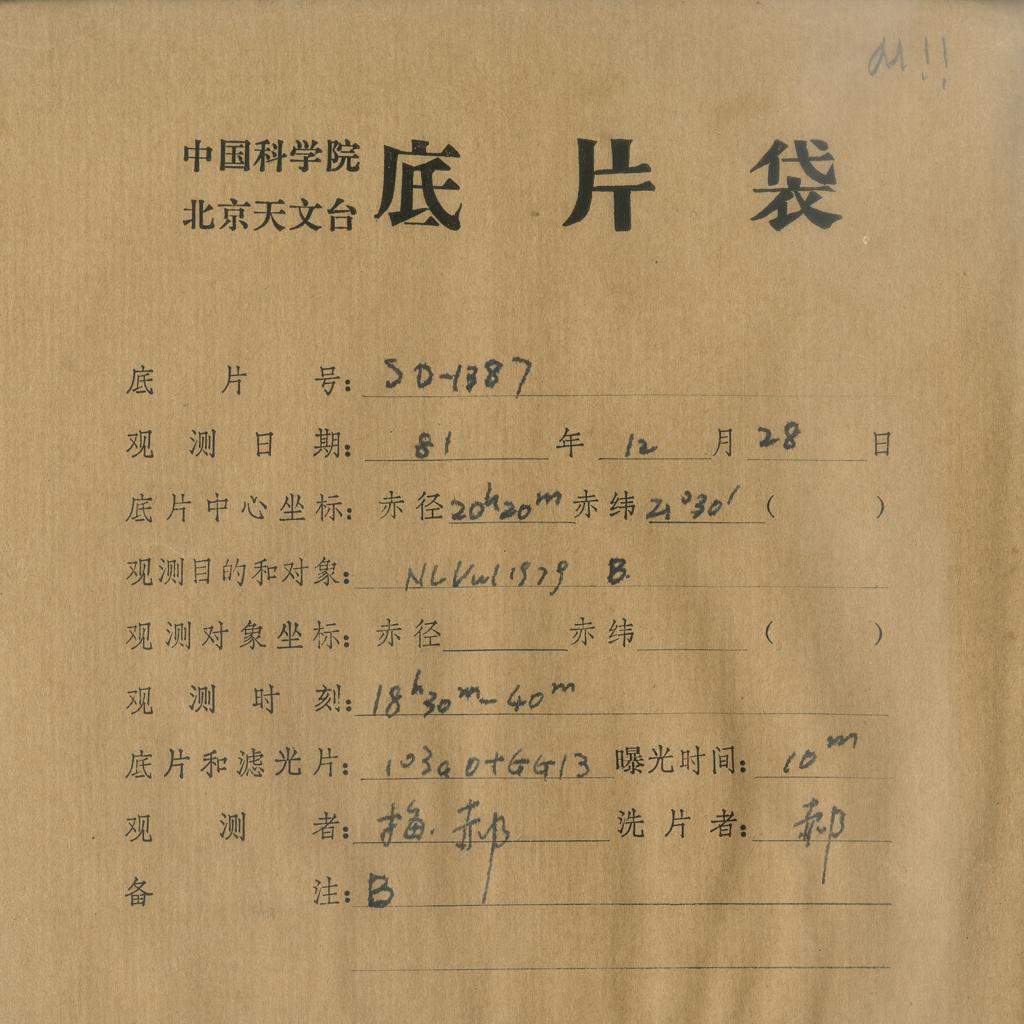 中国科学院
北京天文台
底片袋
底片号: SD-1387
观测日期: 81年12月28日
底片中心坐标: 赤径20ʰ20ᵐ赤纬21°30′( )
观测目的和对象: NLVul1979 B.
观测对象坐标: 赤径 赤纬 ( )
观测时刻: 18ʰ30ᵐ-40ᵐ
底片和滤光片: 103aO+GG13 曝光时间: 10ᵐ
观测者: 梅.郝 洗片者: 郝
备注: B